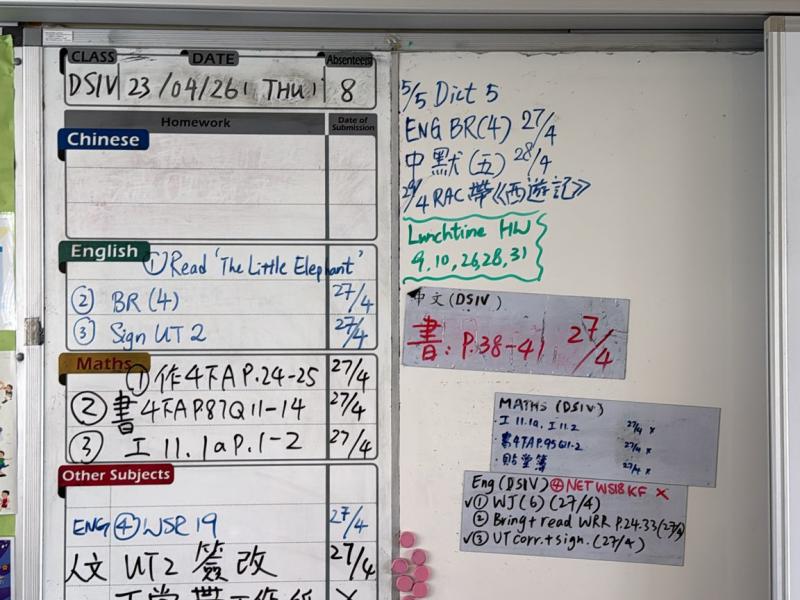 CLASS DATE Absentees
DSIV 23/04/26, THU, 8
Homework Date of Submission
Chinese
English
① Read 'The Little Elephant'
② BR (4) 27/4
③ Sign UT 2 27/4
Maths
① 作4下A P.24-25 27/4
② 書4下AP87Q11-14 27/4
③ 工 11.1a P.1-2 27/4
Other Subjects
ENG ④ WSR 19 27/4
人文 UT2 簽改 27/4
5/5 Dict 5
ENG BR(4) 27/4
中默(五) 28/4
/4 RAC 帶《西遊記》
Lunchtime HW
9,10,26,28,31
中文(DSIV)
書: P.38-41 27/4
MATHS (DSIV)
工 11.1a, 工11.2 27/4 x
書4下AP.95Q11-2 27/4 x
貼堂簿 27/4 x
Eng (DSIV) ④ NET WS18 KF ×
✓① WJ(6) (27/4)
② Bring + read WRR P.24.33 (27/4)
✓③ UT corr. + sign. (27/4)